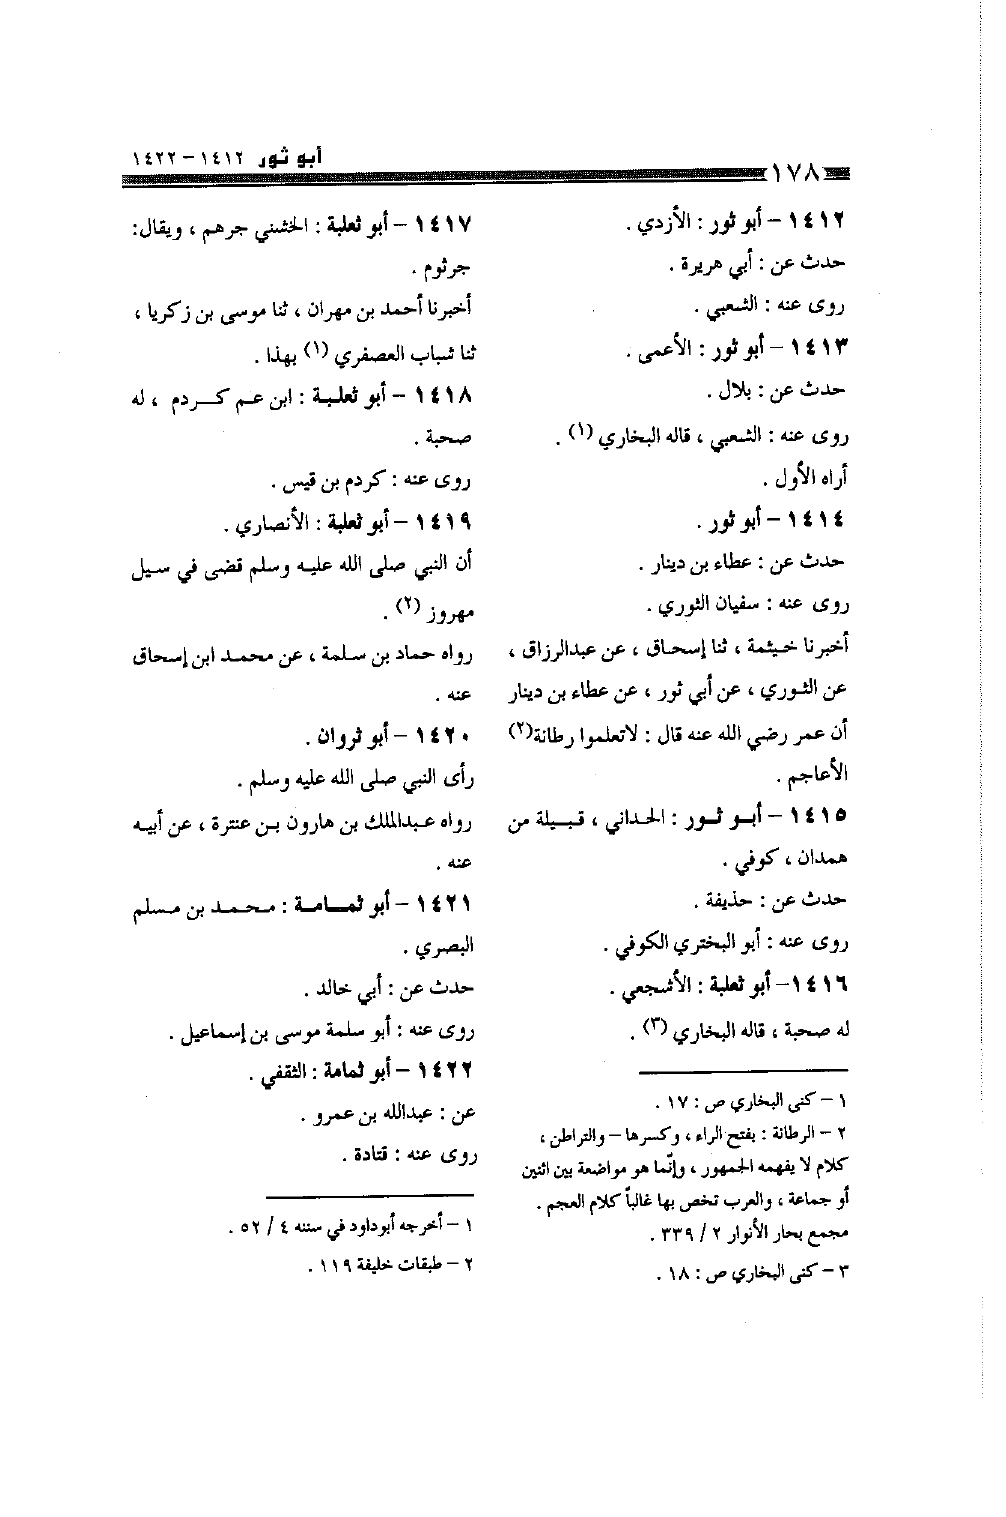 ١٧٨
أبو ثور ١٤١٢ - ١٤٢٢
١٤١٢ - أبو ثور : الأزدي .
حدث عن : أبي هريرة .
روى عنه : الشعبي .
١٤١٣ - أبو ثور : الأعمى .
حدث عن : بلال .
روى عنه : الشعبي ، قاله البخاري (١) .
أراه الأول .
١٤١٤ - أبو ثور .
حدث عن : عطاء بن دينار .
روى عنه : سفيان الثوري .
أخبرنا خيثمة ، ثنا إسحاق ، عن عبدالرزاق ،
عن الثوري ، عن أبي ثور ، عن عطاء بن دينار
أن عمر رضي الله عنه قال : لاتعلموا رطانة(٢)
الأعاجم .
١٤١٥ - أبو ثور : الحداني ، قبيلة من
همدان ، كوفي .
حدث عن : حذيفة .
روى عنه : أبو البختري الكوفي .
١٤١٦ - أبو ثعلبة : الأشجعي .
له صحبة ، قاله البخاري (٣) .
١ - كنى البخاري ص : ١٧ .
٢ - الرطانة : بفتح الراء ، وكسرها - والتراطن ،
كلام لا يفهمه الجمهور ، وإنّما هو مواضعة بين اثنين
أو جماعة ، والعرب تخص بها غالباً كلام العجم .
مجمع بحار الأنوار ٢ / ٣٣٩ .
٣ - كنى البخاري ص : ١٨ .
١٤١٧ - أبو ثعلبة : الخشني جرهم ، ويقال:
جرثوم .
أخبرنا أحمد بن مهران ، ثنا موسى بن زكريا ،
ثنا شباب العصفري (١) بهذا .
١٤١٨ - أبو ثعلبة : ابن عم كردم ، له
صحبة .
روى عنه : كردم بن قيس .
١٤١٩ - أبو ثعلبة : الأنصاري .
أن النبي صلى الله عليه وسلم قضى في سيل
مهروز (٢) .
رواه حماد بن سلمة ، عن محمد ابن إسحاق
عنه .
١٤٢٠ - أبو ثروان .
رأى النبي صلى الله عليه وسلم .
رواه عبدالملك بن هارون بن عنترة ، عن أبيه
عنه .
١٤٢١ - أبو ثمامة : محمد بن مسلم
البصري .
حدث عن : أبي خالد .
روى عنه : أبو سلمة موسى بن إسماعيل .
١٤٢٢ - أبو ثمامة : الثقفي .
عن : عبدالله بن عمرو .
روى عنه : قتادة .
١ - أخرجه أبوداود في سننه ٤ / ٥٢ .
٢ - طبقات خليفة ١١٩ .